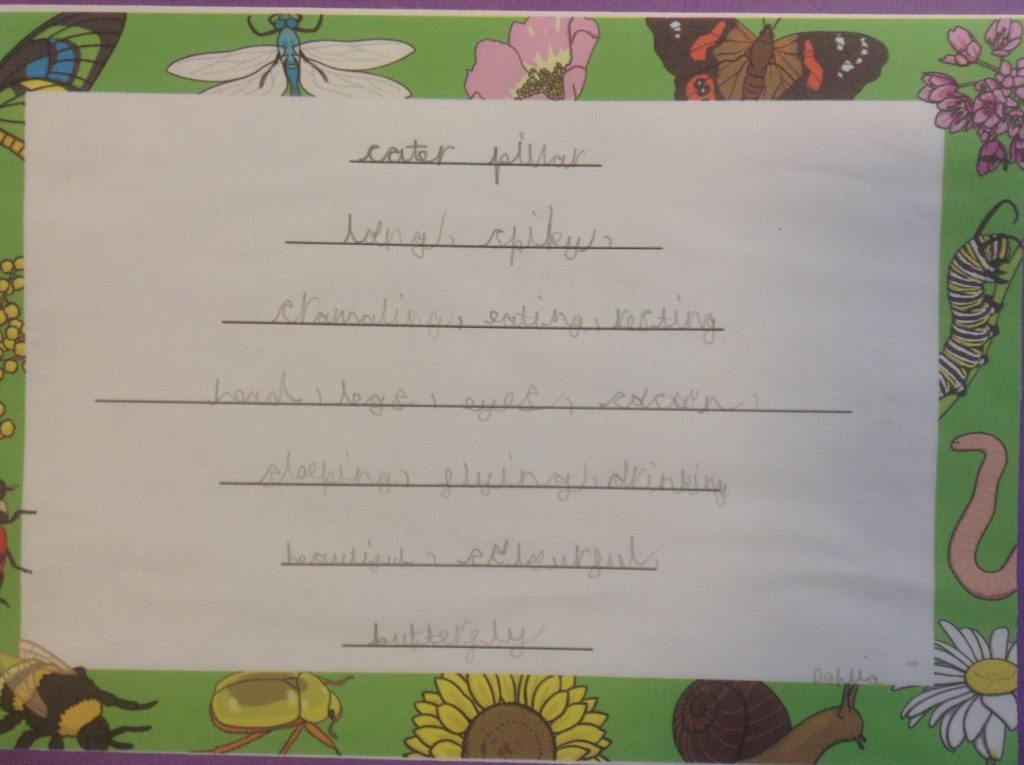 cater pillar
long, spiky,
eating, resting
legs, eyes, cocoon,
sleeping, flying, drinking
beautiful, colourful,
butterfly
Dahlia